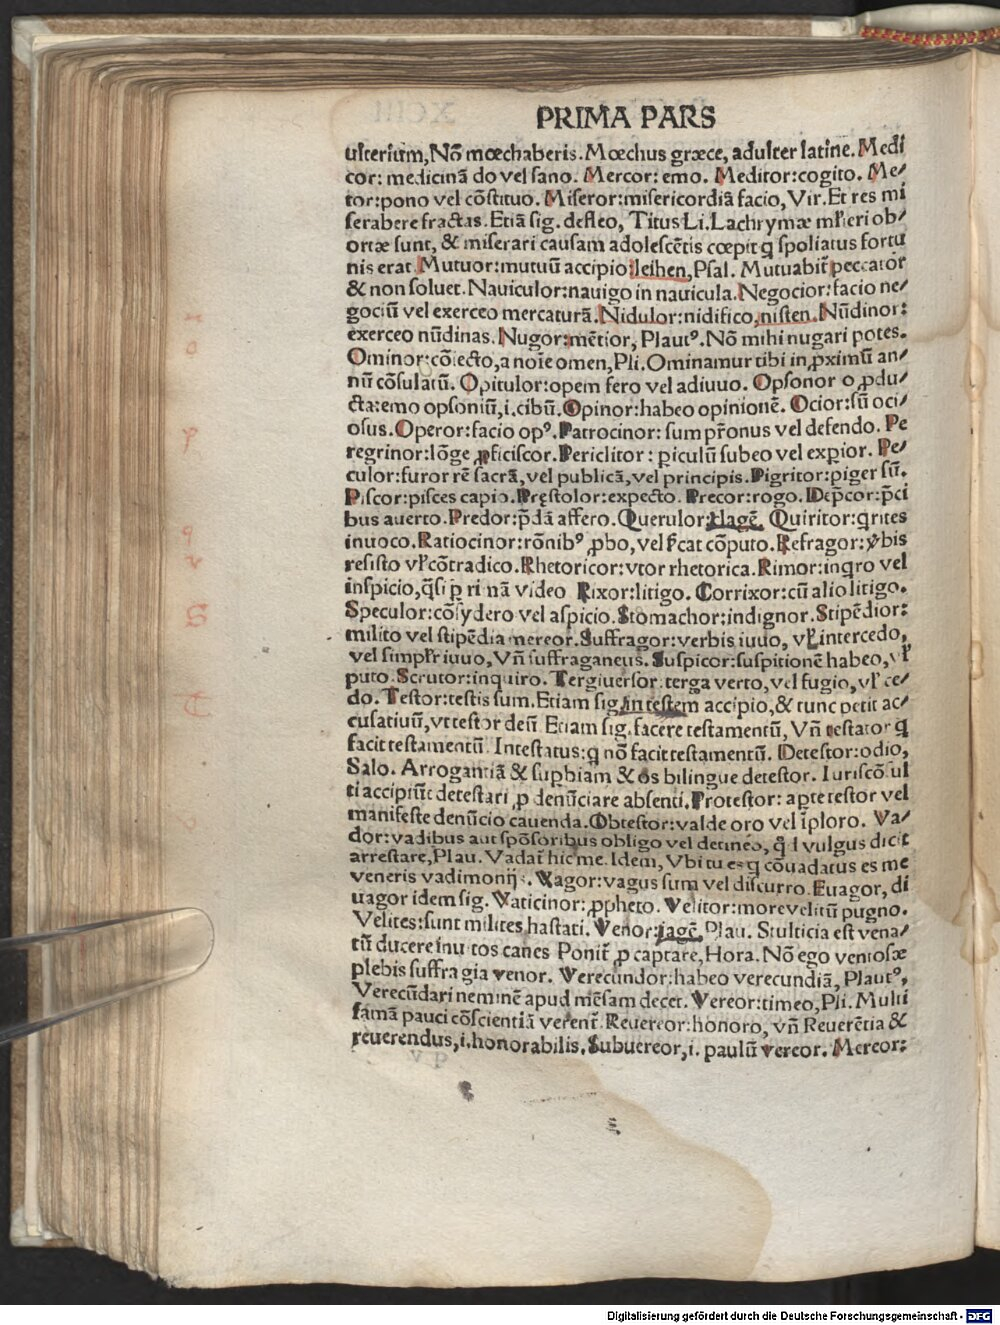 PRIMA PARS
ulterium, Nō mœchaberis. Mœchus græce, adulter latine. Medi
cor: medicinā do vel sano. Mercor: emo. Meditor: cogito. Me⸗
tor: pono vel cōstituo. Miseror: misericordiā facio, Vir. Et res mi
serabere fractas. Etiā sig. defleo, Titus Li. Lachrymæ ml̄ieri ob⸗
ortæ sunt, & miserari causam adolescētis cœpit q spoliatus fortu
nis erat. Mutuor: mutuū accipio: leihen, Psal. Mutuabit̄ peccator
& non soluet. Nauiculor: nauigo in nauicula. Negocior: facio ne⸗
gociū vel exerceo mercaturā. Nidulor: nidifico, nisten. Nūdinor:
exerceo nūdinas. Nugor: mētior, Plautꝰ. Nō mihi nugari potes.
Ominor: cōiecto, a noīe omen, Pli. Ominamur tibi in ꝓximū an⸗
nū cōsulatū. Opitulor: opem fero vel adiuuo. Opsonor o ꝓdu⸗
cta: emo opsoniū, i. cibū. Opinor: habeo opinionē. Ocior: sū oci⸗
osus. Operor: facio opꝰ. Patrocinor: sum pr̄onus vel defendo. Pe
regrinor: lōge ꝓficiscor. Periclitor: ꝑiculū subeo vel exꝑior. Pe⸗
culor: furor rē sacrā, vel publicā, vel principis. Pigritor: piger sū.
Piscor: pisces capio. Pręstolor: expecto. Precor: rogo. Dep̄cor: p̄ci
bus auerto. Predor: p̄dā affero. Querulor: klagē. Quiritor: qrites
inuoco. Ratiocinor: rōnibꝰ ꝓbo, vel cōputo. Refragor: v̄bis
resisto vl̄ cōtradico. Rhetoricor: vtor rhetorica. Rimor: inqro vel
inspicio, q̄si ꝑ rimā video Rixor: litigo. Corrixor: cū alio litigo.
Speculor: cōsydero vel aspicio. Stomachor: indignor. Stipēdior:
milito vel stipēdia mereor. Suffragor: verbis iuuo, vl̄ intercedo,
vel simpl̄r iuuo, Vn̄ suffraganeus. Suspicor: suspitionē habeo, vl̄
puto. Scrutor: inquiro. Tergiuersor: terga verto, vel fugio, vl̄ ce⸗
do. Testor: testis sum. Etiam sig. in testem accipio, & tunc petit ac⸗
cusatiuū, vt testor deū. Etiam sig. facere testamentū, Vn̄ testator q̄
facit testamentū. Intestatus: q nō facit testamentū. Detestor: odio,
Salo. Arrogantiā & supbiam & os bilingue detestor. Iuriscōsul
ti accipiūt detestari, ꝓ denūciare absenti. Protestor: aꝑte testor vel
manifeste denūcio cauenda. Obtestor: valde oro vel īploro. Va⸗
dor: vadibus aut spōsoribus obligo vel detineo, q̄d vulgus dicit
arrestare, Plau. Vadat̄ hic me. Idem, Vbi tu es q cōuadatus es me
veneris vadimonij. Vagor: vagus sum vel discurro. Euagor, di
uagor idem sig. Vaticinor: ꝓpheto. Velitor: more velitū pugno.
Velites: sunt milites hastati. Venor: jagē, Plau. Stulticia est vena⸗
tū ducere inuitos canes Ponit̄ ꝓ captare, Hora. Nō ego ventosæ
plebis suffragia venor. Verecundor: habeo verecundiā, Plautꝰ,
Verecūdari neminē apud mēsam decet. Vereor: timeo, Pli. Multi
famā pauci cōscientiā verent̄. Reuereor: honoro, vn̄ Reuerētia &
reuerendus, i. honorabilis. Subuereor, i. paulū vereor. Mereor:
Digitalisierung gefördert durch die Deutsche Forschungsgemeinschaft - DFG